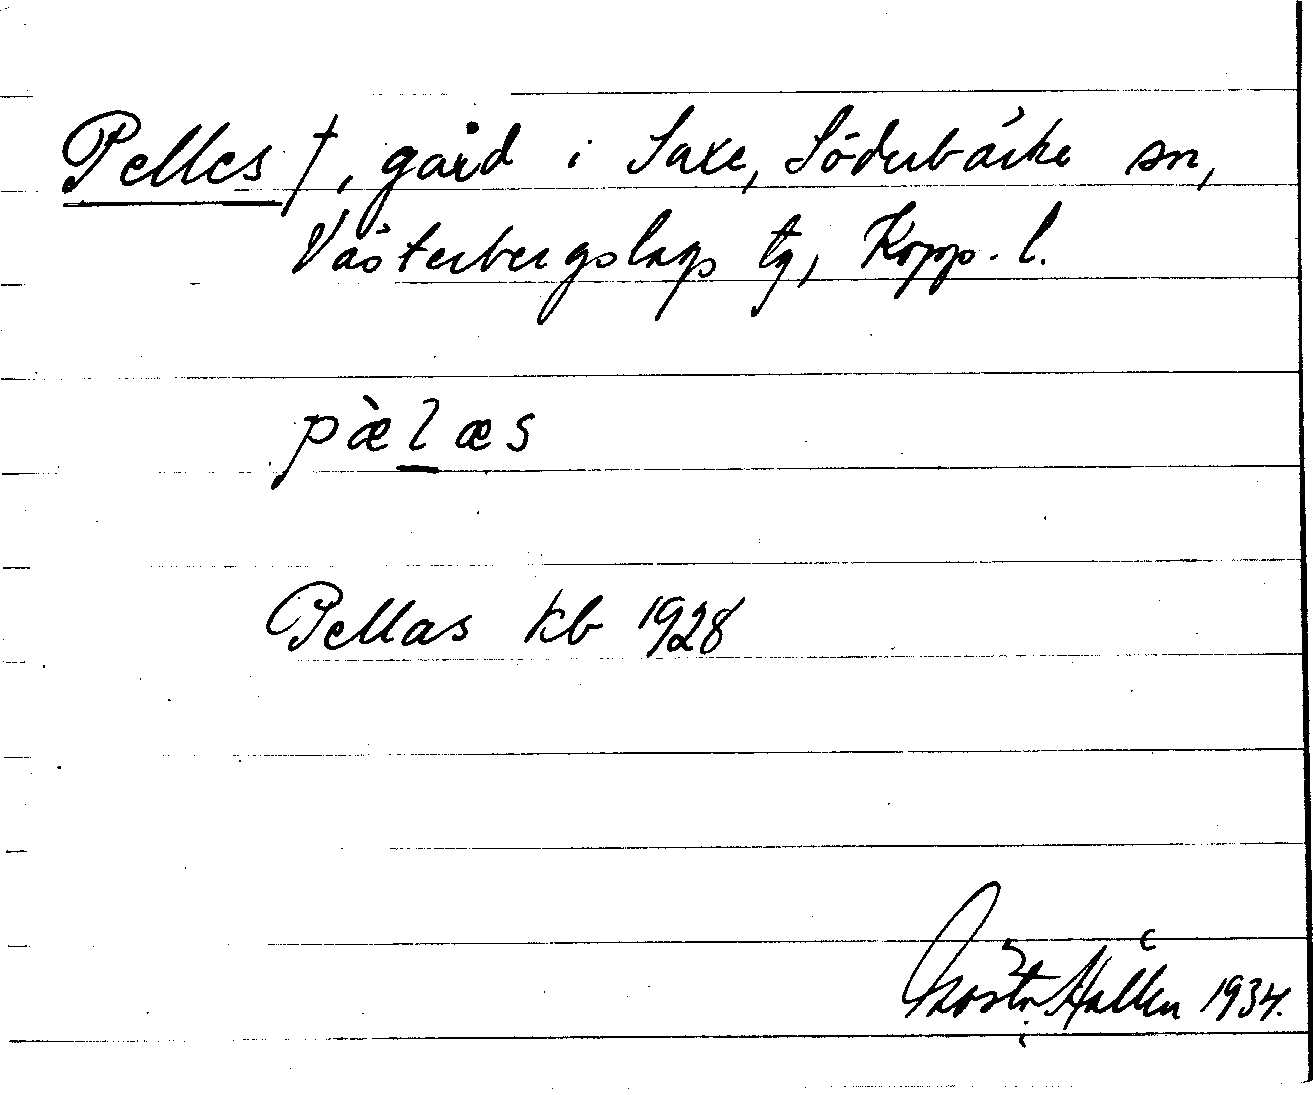 Pelles †, gård i Saxe, Söderbärke sn,
Västerbergslags tg, Kopp. l.
pàl̲æs
Pellas kb 1928
Gösta Hallén 1934.